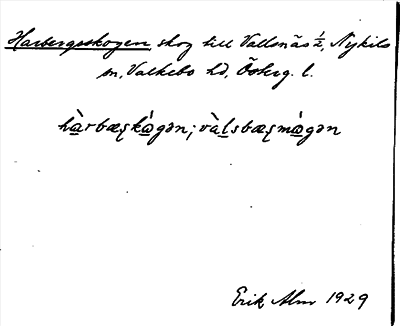 Harbergsskogen skog till Vallsnäs ½, Nykils
sn, Valkebo hd, Österg. l.
hàrbæʂkɷ́gən; vàlsbæʂmɷ́gən
Erik Alm 1929